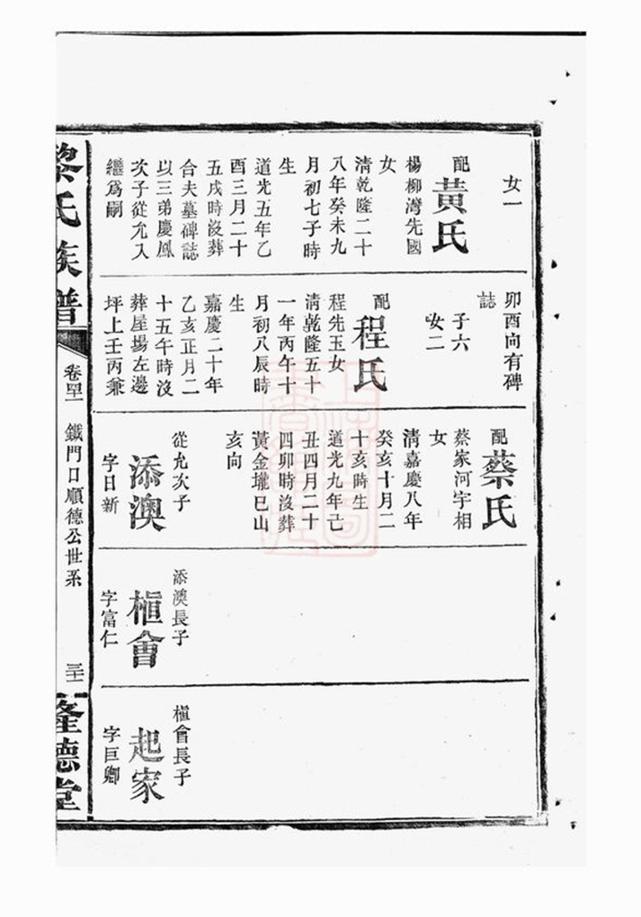 女一
配
黃氏
楊柳灣先國
女
清乾隆二十
八年癸未九
月初七子時
生
道光五年乙
酉三月二十
五戌時沒葬
合夫墓碑誌
以三弟慶鳳
次子從允入
繼爲嗣
卯酉向有碑
誌
子六
女二
配
程氏
程先玉女
清乾隆五十
一年丙午十
月初八辰時
生
嘉慶二十年
乙亥正月二
十五午時沒
葬屋場左邊
坪上壬丙兼
配
蔡氏
蔡家河字相
女
清嘉慶八年
癸亥十月二
十亥時生
道光九年己
丑四月二十
四卯時沒葬
黃金壠巳山
亥向
從允次子
添澳
字日新
添澳長子
楦會
字富仁
楦會長子
起家
字巨卿
黎氏族譜
鐵門口順德公世系
隆德堂